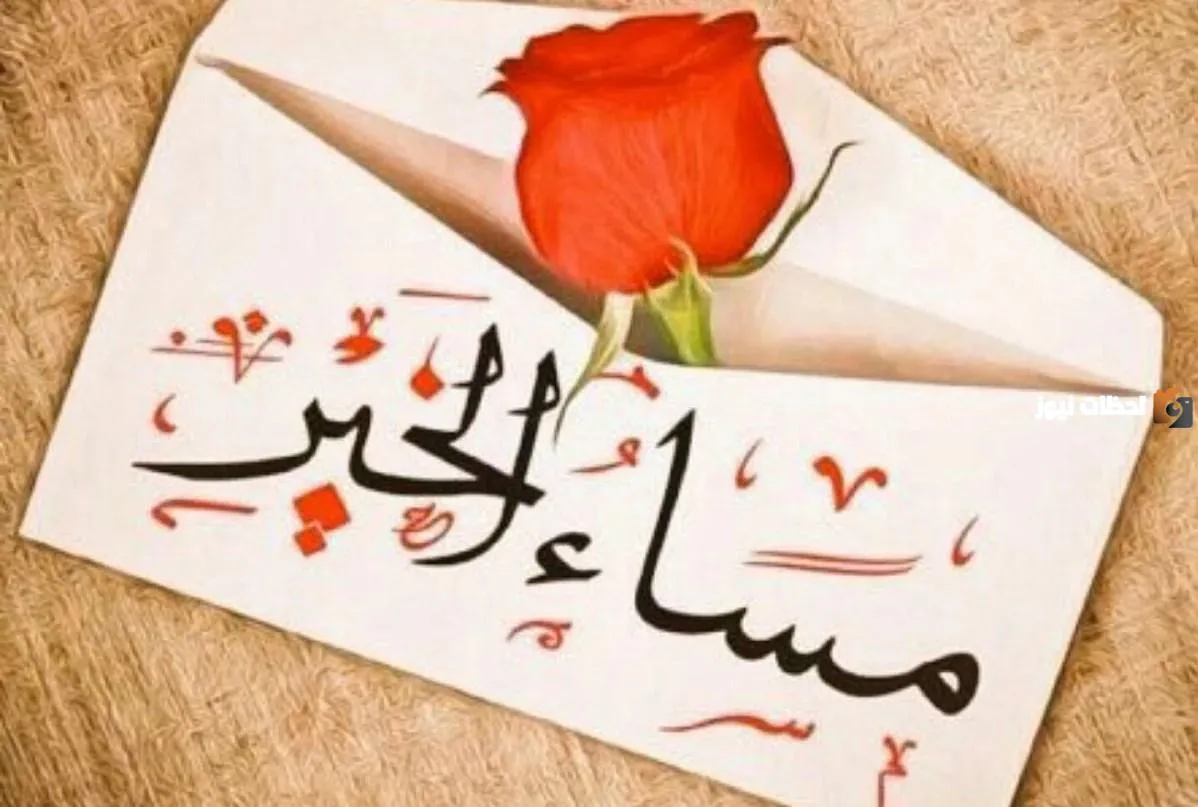 مساء الخير
لحظات نيوز